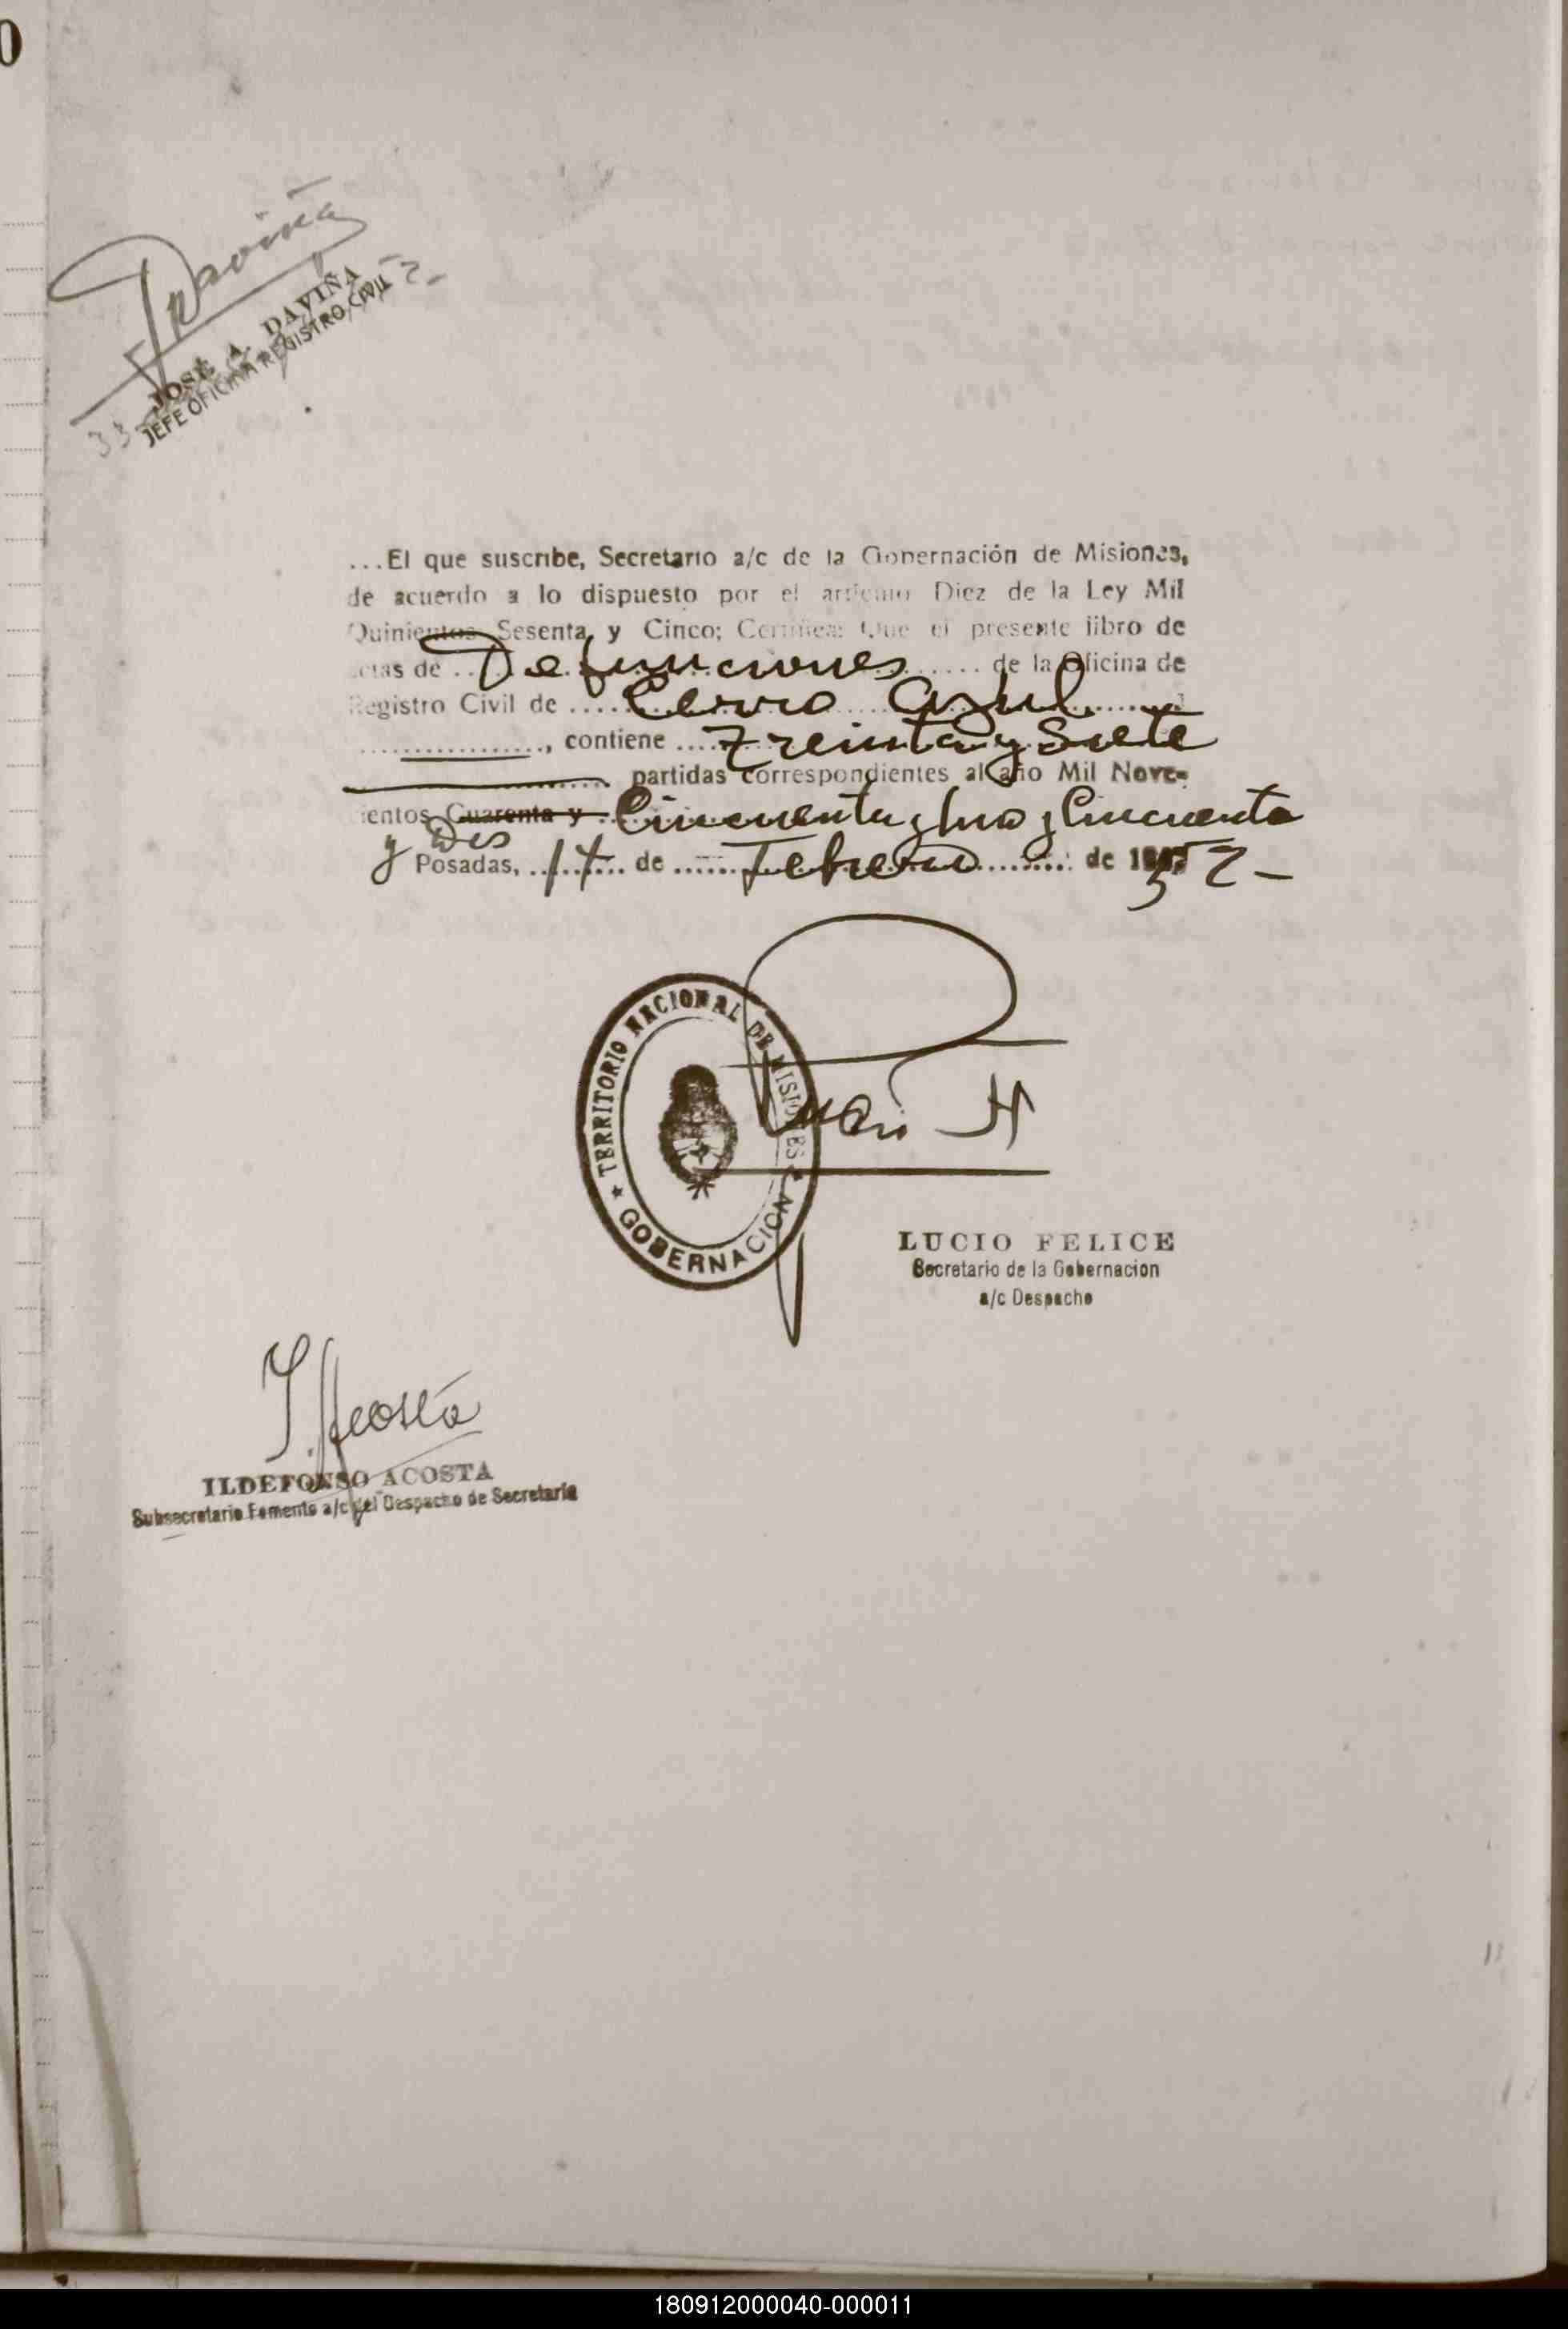 0
Daviña
JOSÉ A. DAVIÑA
JEFE OFICINA REGISTRO CIVIL
...El que suscribe, Secretario a/c de la Gobernación de Misiones,
de acuerdo a lo dispuesto por el artículo Diez de la Ley Mil
Quinientos Sesenta y Cinco; Certifica: Que el presente libro de
actas de Defunciones de la Oficina de
Registro Civil de Cerro Azul
, contiene Treinta y Siete
partidas correspondientes al año Mil Nove-
cientos Cuarenta y Cincuenta y Uno y Cincuenta
y Dos
Posadas, 14 de Febrero de 1952-
TERRITORIO NACIONAL DE MISIONES
GOBERNACION
LUCIO FELICE
Secretario de la Gobernacion
a/c Despacho
I. Acosta
ILDEFONSO ACOSTA
Subsecretario Fomento a/c del Despacho de Secretaría
180912000040-000011